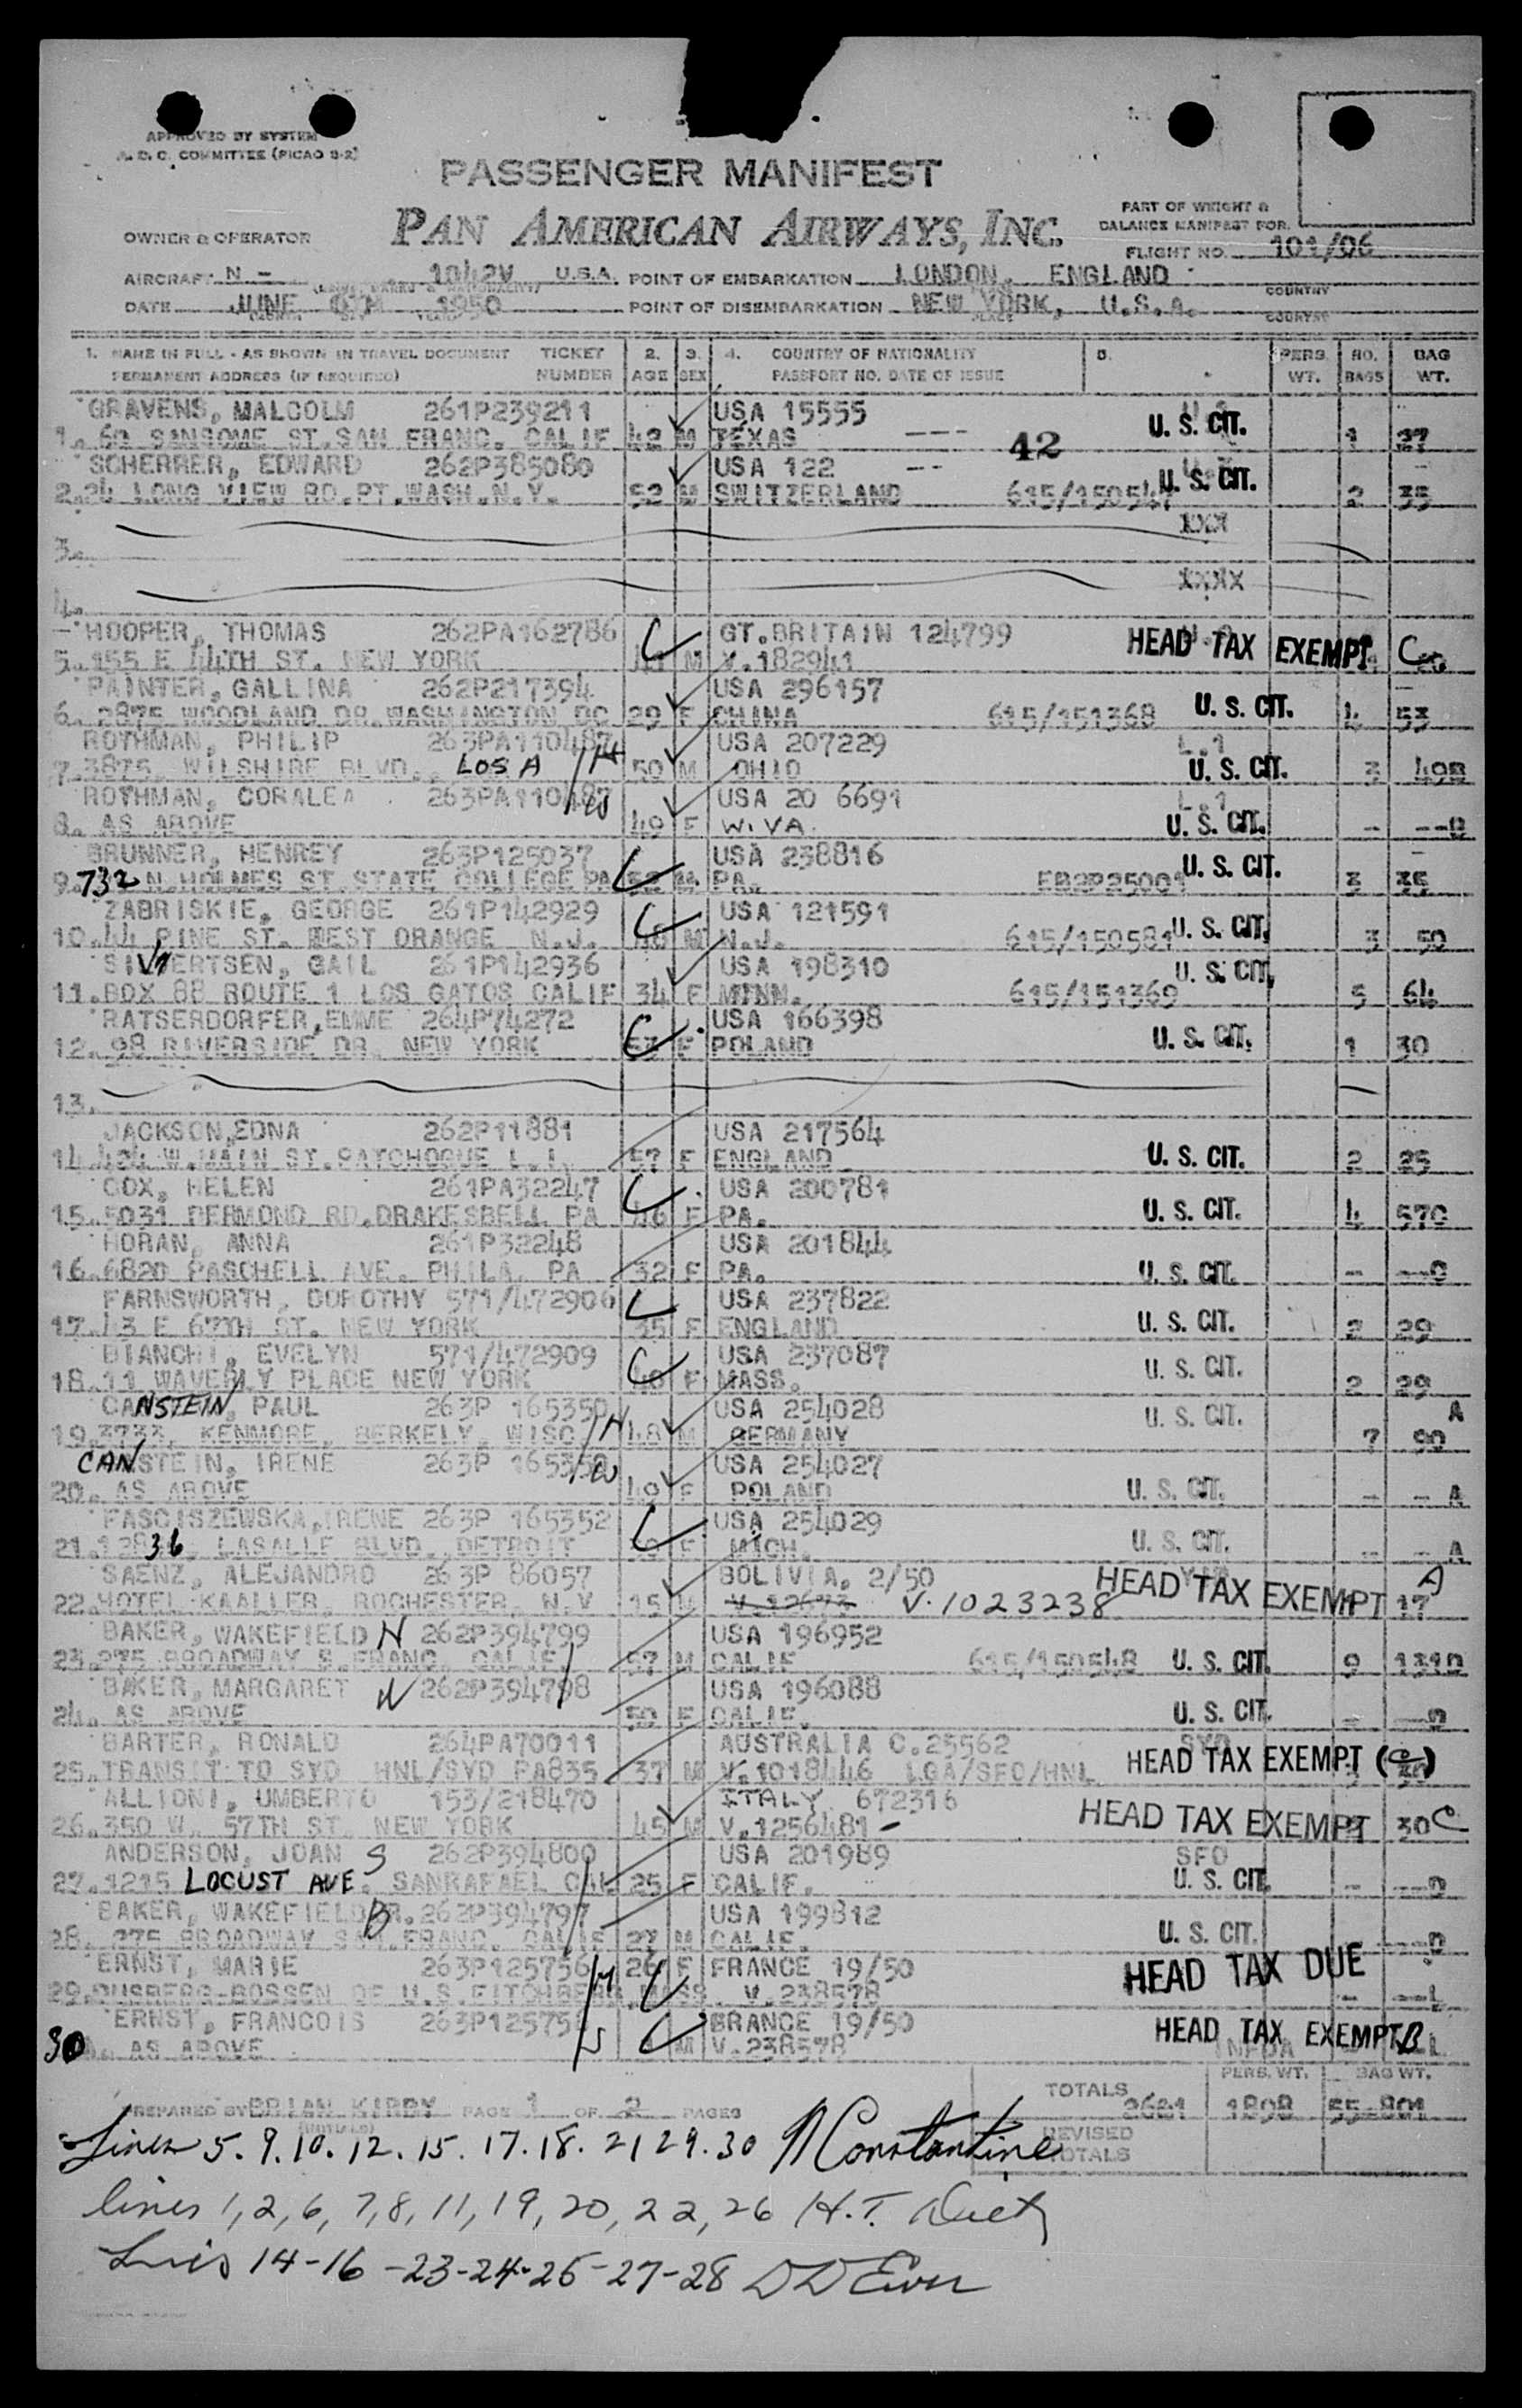 APPROVED BY SYSTEM
A. D. C. COMMITTEE (PICAO 9-2)
PASSENGER MANIFEST
PAN AMERICAN AIRWAYS, INC.
PART OF WEIGHT &
BALANCE MANIFEST FOR
OWNER & OPERATOR
FLIGHT NO. 101/06
AIRCRAFT N - 1042V U.S.A. POINT OF EMBARKATION LONDON, ENGLAND
COUNTRY
DATE JUNE 1950 POINT OF DISEMBARKATION NEW YORK, U.S.A.
PLACE COUNTRY
1. NAME IN FULL - AS SHOWN IN TRAVEL DOCUMENT TICKET 2. 3. 4. COUNTRY OF NATIONALITY 5. PERS. NO. BAG
PERMANENT ADDRESS (IF REQUIRED) NUMBER AGE SEX PASSPORT NO. DATE OF ISSUE WT. BAGS WT.
GRAVENS, MALCOLM 261P239211 USA 15555
1. 60 SANSOME ST. SAN FRANC. CALIF 42 M TEXAS --- 42 U. S. CIT. 1 37
SCHERRER, EDWARD 262P385080 USA 122 --
2. 24 LONG VIEW RD. PT. WASH. N.Y. 52 M SWITZERLAND 615/150547 U. S. CIT. 2 35
XXX
3.
XXXX
4.
HOOPER, THOMAS 262PA162786 C GT. BRITAIN 124799
5. 155 E 44TH ST. NEW YORK M V. 182941 HEAD TAX EXEMPT C
PAINTER, GALLINA 262P217394 USA 296157
6. 2875 WOODLAND DR. WASHINGTON DC 29 F CHINA 615/151368 U. S. CIT. 4 53
ROTHMAN, PHILIP 263PA110487 H USA 207229 L.1
7. 3875 WILSHIRE BLVD. LOS A 50 M OHIO U. S. CIT. 3 49B
ROTHMAN, CORALEA 263PA110487 W USA 20 6691 L.1
8. AS ABOVE 49 F W. VA. U. S. CIT. - --B
BRUNNER, HENREY 263P125037 C USA 238816
9. 732 N. HOLMES ST. STATE COLLEGE PA 52 M PA. U. S. CIT. 3 35
ZABRISKIE, GEORGE 261P142929 C USA 121591
10. 44 PINE ST. WEST ORANGE N.J. 48 M N.J. 615/150581 U. S. CIT. 3 50
SIVERTSEN, GAIL 261P142936 USA 198310
11. BOX 88 ROUTE 1 LOS GATOS CALIF 34 F MINN. 615/151369 U. S. CIT. 5 64
RATSERDORFER, EMME 264P74272 C USA 166398
12. 98 RIVERSIDE DR. NEW YORK 53 F POLAND U. S. CIT. 1 30
13.
JACKSON, EDNA 262P11881 USA 217564
14. 424 W. MAIN ST. PATCHOGUE L.I. 57 F ENGLAND U. S. CIT. 2 25
COX, HELEN 261PA32247 C USA 200781
15. 5031 DERMOND RD. DRAKESBELL PA 46 F PA. U. S. CIT. 4 570
HORAN, ANNA 261P32248 USA 201844
16. 6820 PASCHELL AVE. PHILA. PA 32 F PA. U. S. CIT. - --0
FARNSWORTH, DOROTHY 571/472906 C USA 237822
17. 43 E 67TH ST. NEW YORK 35 F ENGLAND U. S. CIT. 2 29
BIANCHI, EVELYN 571/472909 C USA 237087
18. 11 WAVERLY PLACE NEW YORK 40 F MASS. U. S. CIT. 2 29
CANSTEIN, PAUL 263P 165350 H USA 254028 A
19. 3733 KENMORE, BERKELY, WISC 48 M GERMANY U. S. CIT. 7 90
CANSTEIN, IRENE 263P 165350 W USA 254027
20. AS ABOVE 49 F POLAND U. S. CIT. - - A
FASCISZEWSKA, IRENE 263P 165352 C USA 254029
21. 12836 LASALLE BLVD. DETROIT F MICH. U. S. CIT. - - A
SAENZ, ALEJANDRO 263P 86057 BOLIVIA. 2/50 A
22. HOTEL KAALLER, ROCHESTER, N.Y 15 M V. 12673 V. 1023238 HEAD TAX EXEMPT 17
BAKER, WAKEFIELD H 262P394799 USA 196952
23. 275 BROADWAY S. FRANC. CALIF 57 M CALIF 615/150548 U. S. CIT. 9 131D
BAKER, MARGARET W 262P394798 USA 196088
24. AS ABOVE 50 F CALIF. U. S. CIT. - --D
BARTER, RONALD 264PA70011 AUSTRALIA C.25562 SYD
25. TRANSIT TO SYD HNL/SYD PA835 37 M V. 1018446 LGA/SFO/HNL HEAD TAX EXEMPT 30
ALLIONI, UMBERTO 153/218470 ITALY 672316
26. 350 W. 57TH ST. NEW YORK 45 M V. 1256481 - HEAD TAX EXEMPT 30 C
ANDERSON, JOAN S 262P394800 USA 201989 SFO
27. 1215 LOCUST AVE. SANRAFAEL CAL 25 F CALIF. U. S. CIT. - --D
BAKER, WAKEFIELD B JR. 262P394797 USA 199812
28. 275 BROADWAY SAN. FRANC. CALIF 27 M CALIF. U. S. CIT. --D
ERNST, MARIE 263P125756 M 26 F FRANCE 19/50
29. OF U.S. FITCHBERG MASS. V. 238578 HEAD TAX DUE - --L
ERNST, FRANCOIS 263P12575 S C BRANCE 19/50
30 AS ABOVE M V. 238578 HEAD TAX EXEMPT B
TOTALS PERS. WT. BAG WT.
PREPARED BY BRIAN KIRBY PAGE 1 OF 2 PAGES 2621 1898 55-801
REVISED
TOTALS
Lines 5. 9. 10. 12. 15. 17. 18. 21 29. 30 N Constantine
lines 1, 2, 6, 7, 8, 11, 19, 20, 22, 26 H. T.
14-16-23-24-25-27-28